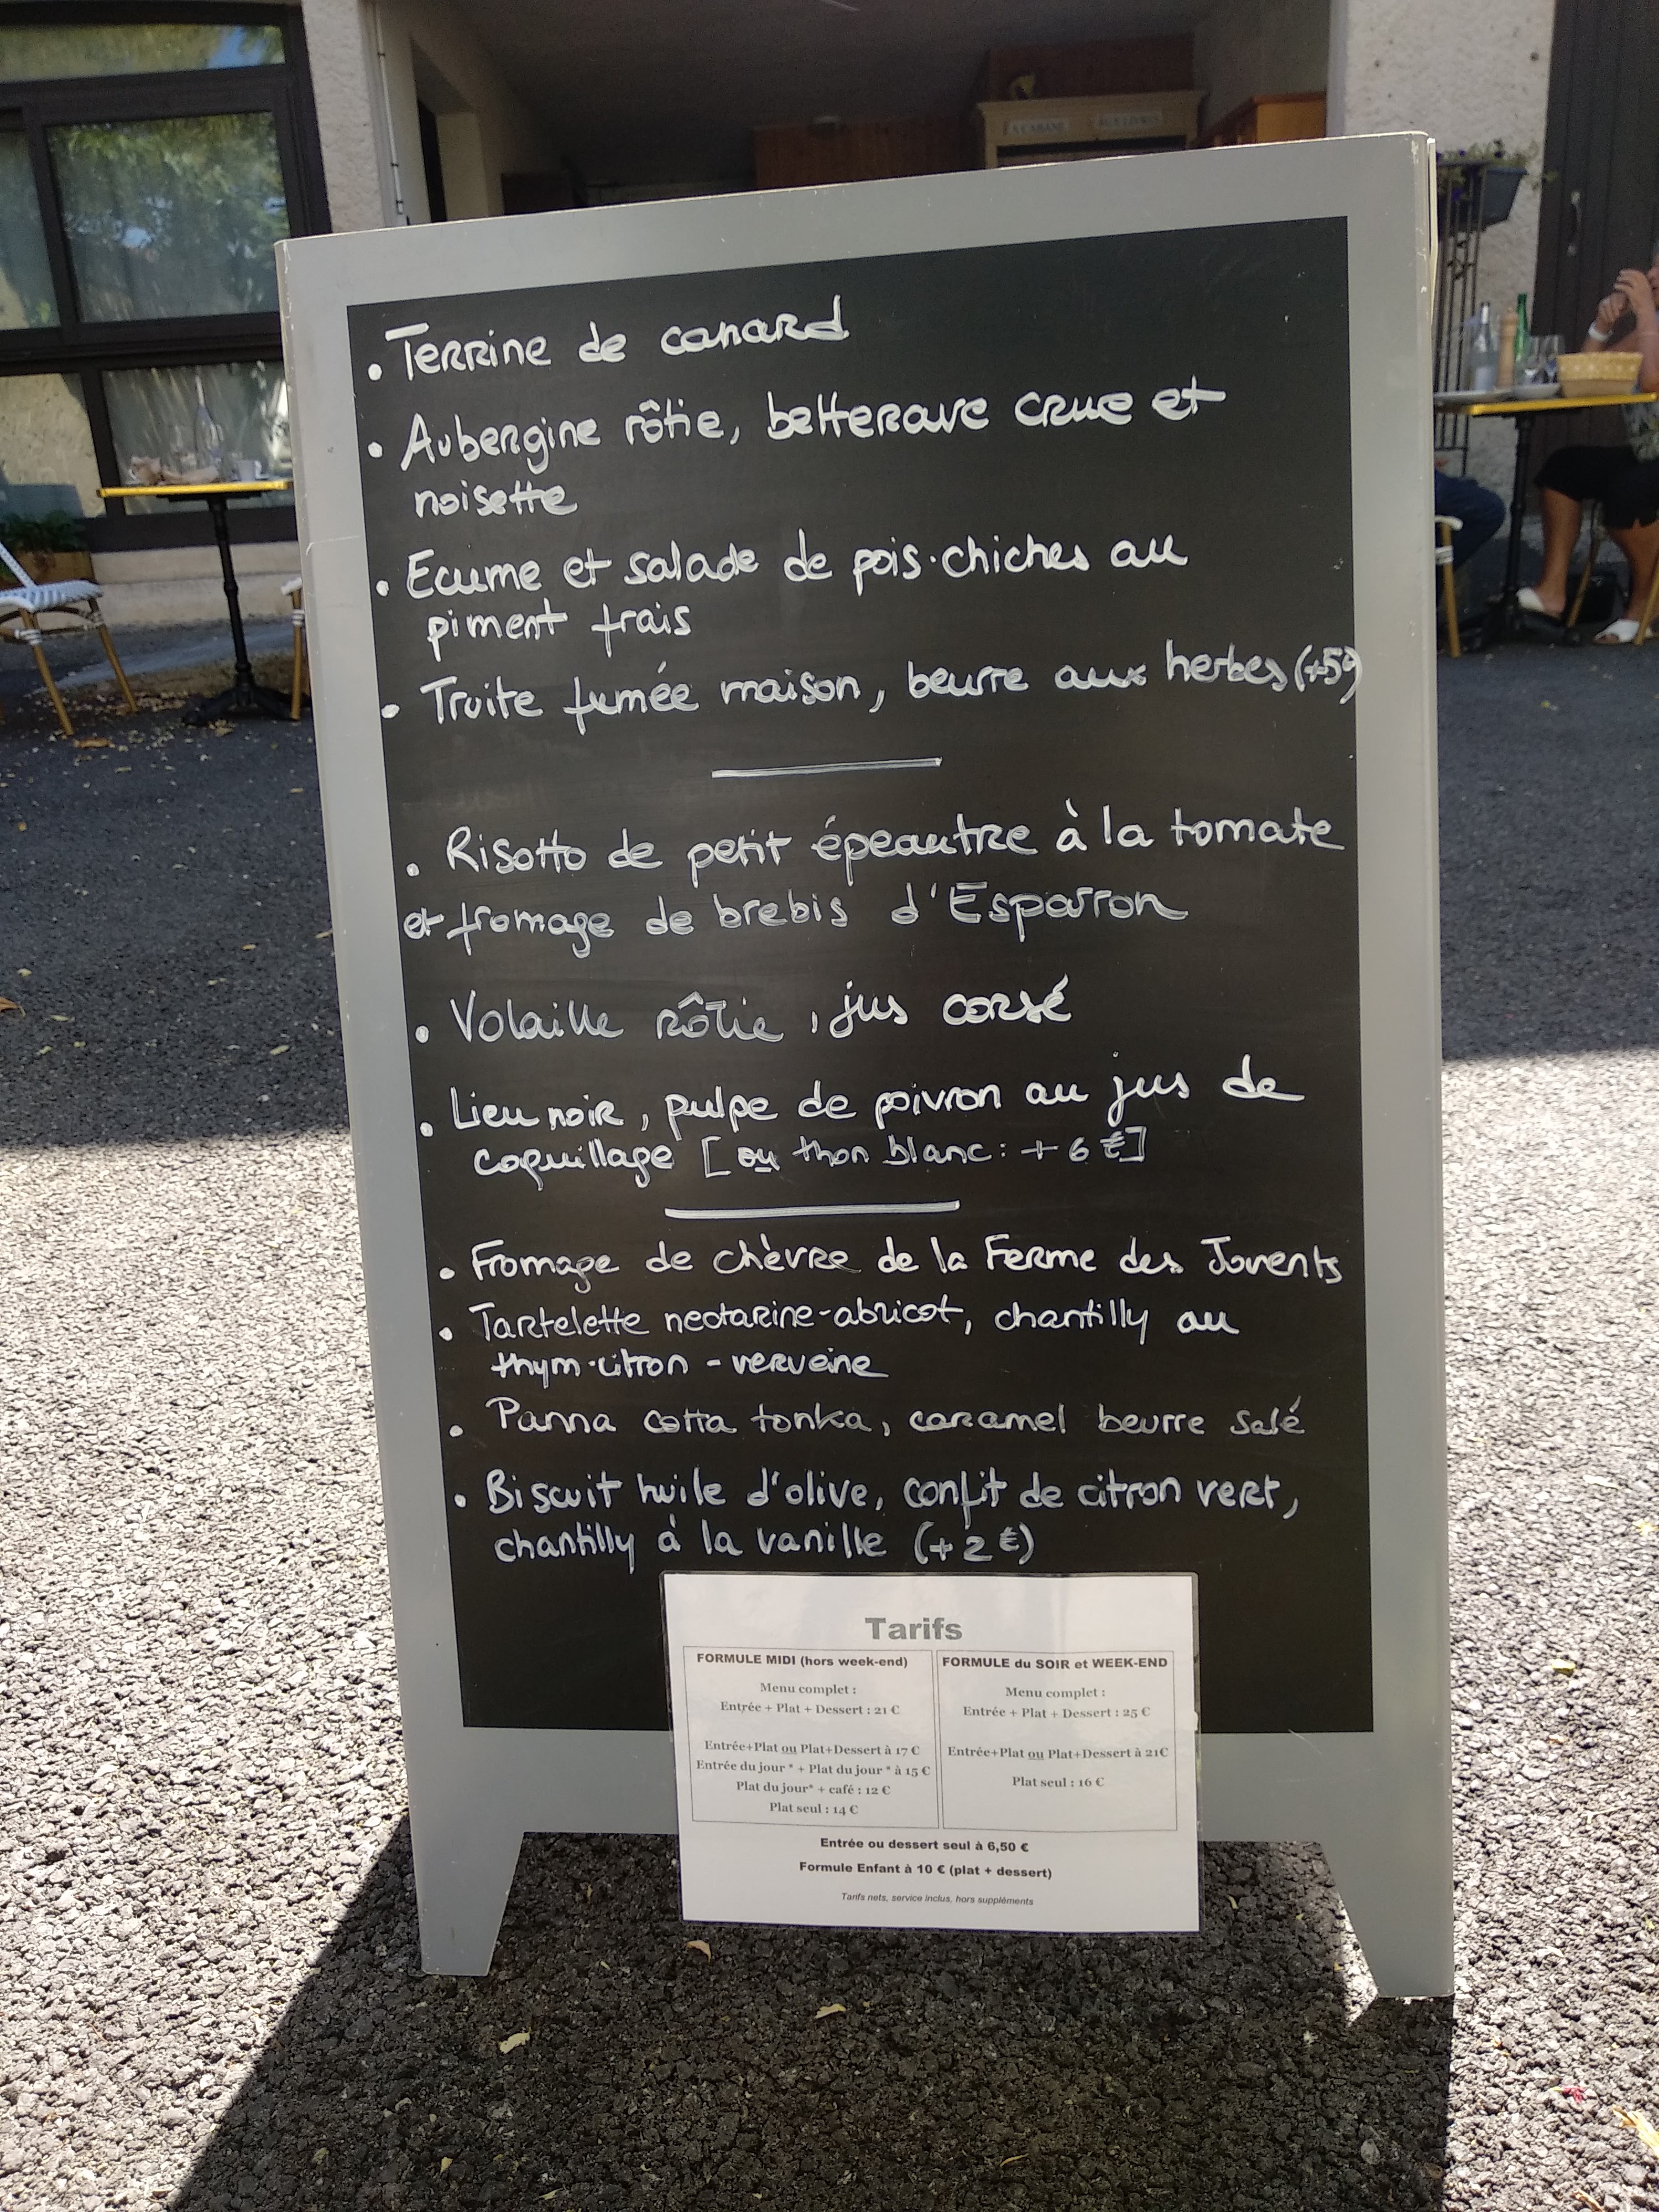 A CABANE AUX LIVRES
• Terrine de canard
• Aubergine rôtie, betterave crue et
noisette
• Ecume et salade de pois-chiches au
piment frais
• Truite fumée maison, beurre aux herbes (+5€)
• Risotto de petit épeautre à la tomate
et fromage de brebis d'Esparron
• Volaille rôtie, jus corsé
• Lieu noir, pulpe de poivron au jus de
coquillage [ou thon blanc : + 6 €]
• Fromage de chèvre de la Ferme des Jovents
• Tartelette nectarine-abricot, chantilly au
thym-citron - verveine
• Panna cotta tonka, caramel beurre salé
• Biscuit huile d'olive, confit de citron vert,
chantilly à la vanille (+2 €)
Tarifs
FORMULE MIDI (hors week-end)
Menu complet :
Entrée + Plat + Dessert : 21 €
Entrée+Plat ou Plat+Dessert à 17 €
Entrée du jour * + Plat du jour * à 15 €
Plat du jour* + café : 12 €
Plat seul : 14 €
FORMULE du SOIR et WEEK-END
Menu complet :
Entrée + Plat + Dessert : 25 €
Entrée+Plat ou Plat+Dessert à 21€
Plat seul : 16 €
Entrée ou dessert seul à 6,50 €
Formule Enfant à 10 € (plat + dessert)
Tarifs nets, service inclus, hors suppléments